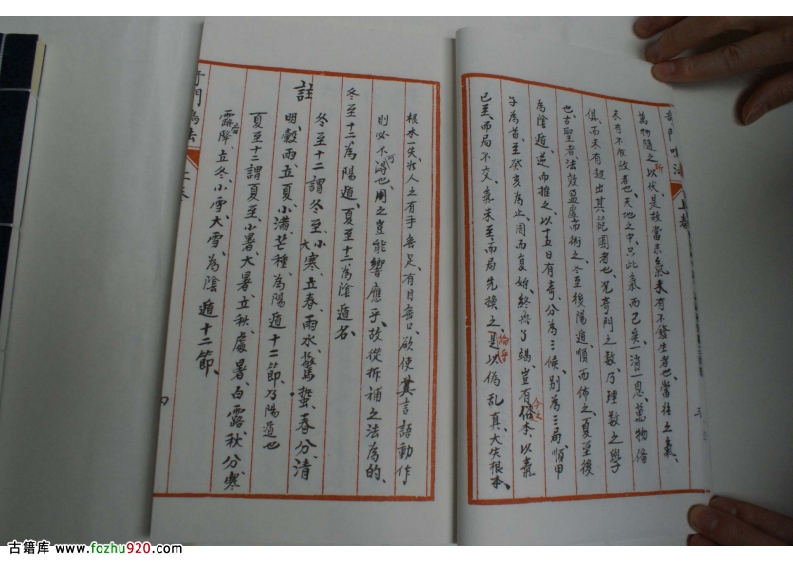 萬物隨之以伏是故當示氣未有不發生者也當往之氣、
所
未有不收斂者也天地之中只此氣而已矣一消一息萬物俗
俱而未有超出其範圍者也況奇門之数乃理数之學
也古聖者法效盈虛而術之冬至後陽遁順而佈之夏至後
為陰遁逆而推之以十五日有奇分為三候別為三局順甲
子為首至癸亥為止周而复始終與了竭豈有俗本以
已至而局不交氣未至而局先換之是以偽乱真大失根本、
根本一失、人之有手無足有目無口、欲使其言語動作
則必不得也、用之豈能響應乎、故從拆補之法為的、
可
冬至十二為陽遁、夏至十二為陰遁名、
註 冬至十二謂冬至、小寒、大寒、立春、雨水、驚蟄、春分、清
明、穀雨、立夏、小滿、芒種、為陽遁十二節、乃陽遁也
夏至十二謂夏至、小暑、大暑、立秋、處暑、白露、秋分、寒
露、霜降、立冬、小雪、大雪、為陰遁十二節、
古籍库 www.fozhu920.com